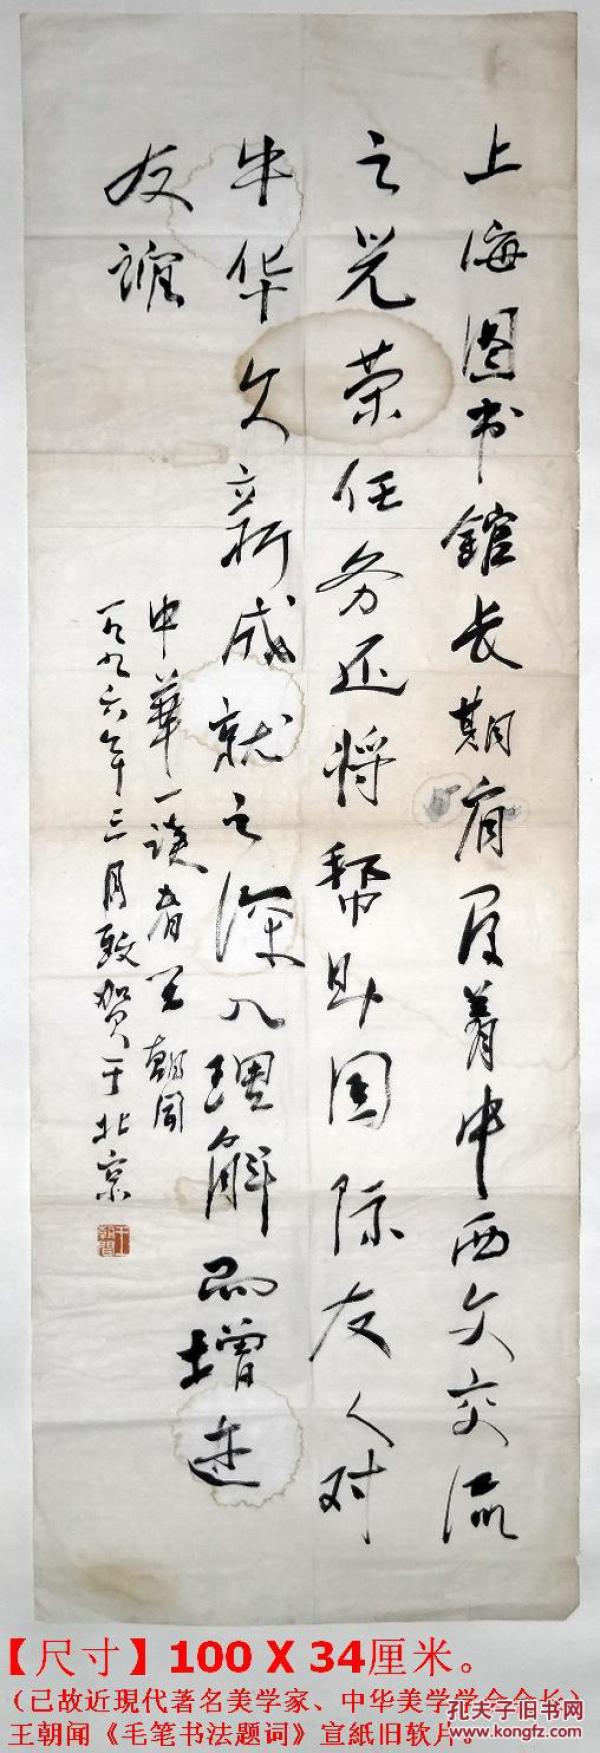 上海图书館长期肩负着中西文交流
之光荣任务还将帮助国际友人对
中华文新成就之深入理解而增进
友谊
中華一读者王朝闻
一九九六年三月致贺于北京
王朝闻
【尺寸】100 X 34厘米。
（已故近現代著名美学家、中华美学学会会长）
王朝闻《毛笔书法题词》宣紙旧软片。
孔夫子旧书网
www.kongfz.com